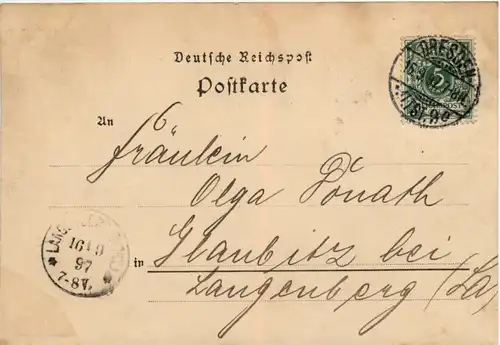 Deutsche Reichspost
Postkarte
DRESDEN
5
An
Fräulein
Olga Donath
in Glaubitz bei
Langenberg (Sa
16 9
97
7-8V.